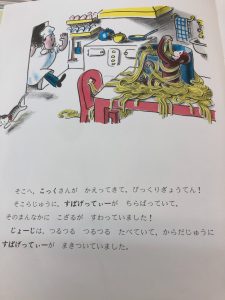 そこへ、こっくさんが かえってきて、びっくりぎょうてん！
そこらじゅうに、すぱげってぃーが ちらばっていて、
そのまんなかに こざるが すわっていました！
じょーじは、つるつる つるつる たべていて、からだじゅうに
すぱげってぃーが まきついていました。